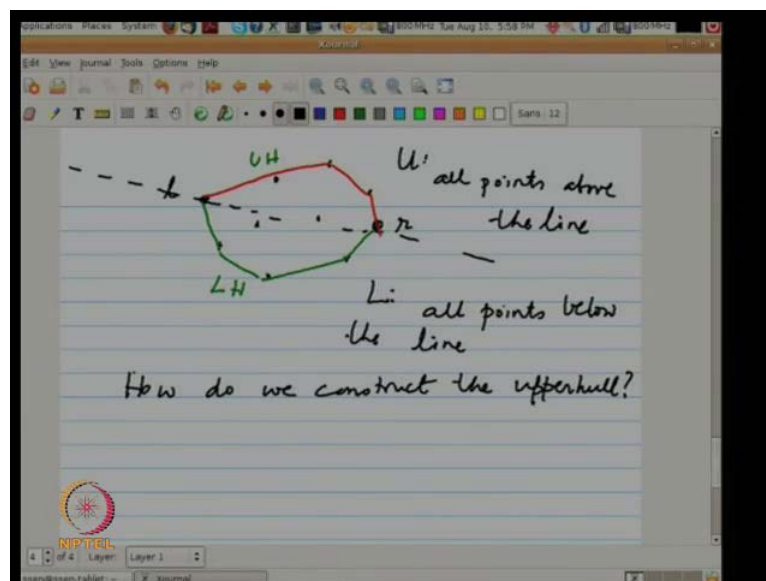 Applications Places System 800 MHz Tue Aug 10, 5:58 PM 800 MHz
Xournal
Edit View Journal Tools Options Help
T Sans 12
UH
U:
all points above
the line
l
r
LH
L:
all points below
the line
How do we construct the upperhull?
NPTEL
4 of 4 Layer: Layer 1
Xournal